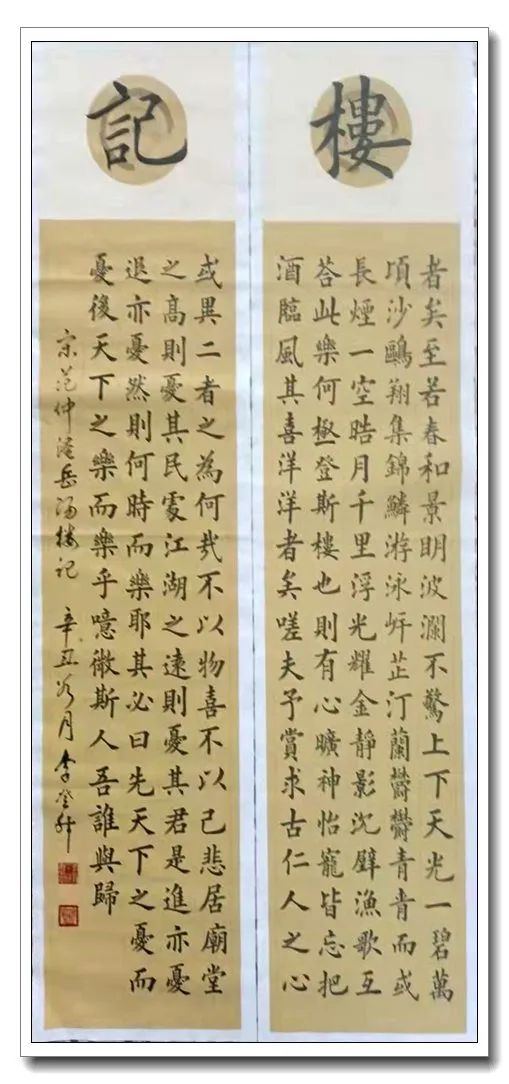 樓
者矣至若春和景明波瀾不驚上下天光一碧萬
頃沙鷗翔集錦鱗游泳岍芷汀蘭鬱鬱青青而或
長煙一空晧月千里浮光耀金靜影沉璧漁歌互
荅此樂何極登斯樓也則有心曠神怡寵皆忘把
酒臨風其喜洋洋者矣嗟夫予賞求古仁人之心
記
或異二者之為何哉不以物喜不以己悲居廟堂
之高則憂其民處江湖之遠則憂其君是進亦憂
退亦憂然則何時而樂耶其必曰先天下之憂而
憂後天下之樂而樂乎噫微斯人吾誰與歸
宋范仲淹岳陽樓記 辛丑冬月 李登